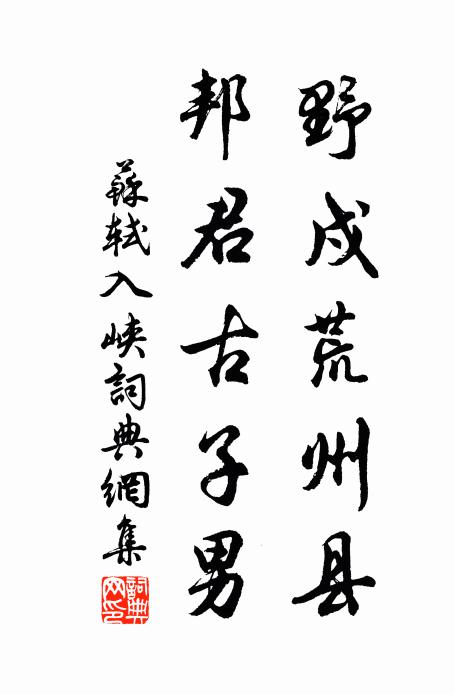 野戍荒州县
邦君古子男
蘇軾入峽詞典網集
詞典網印